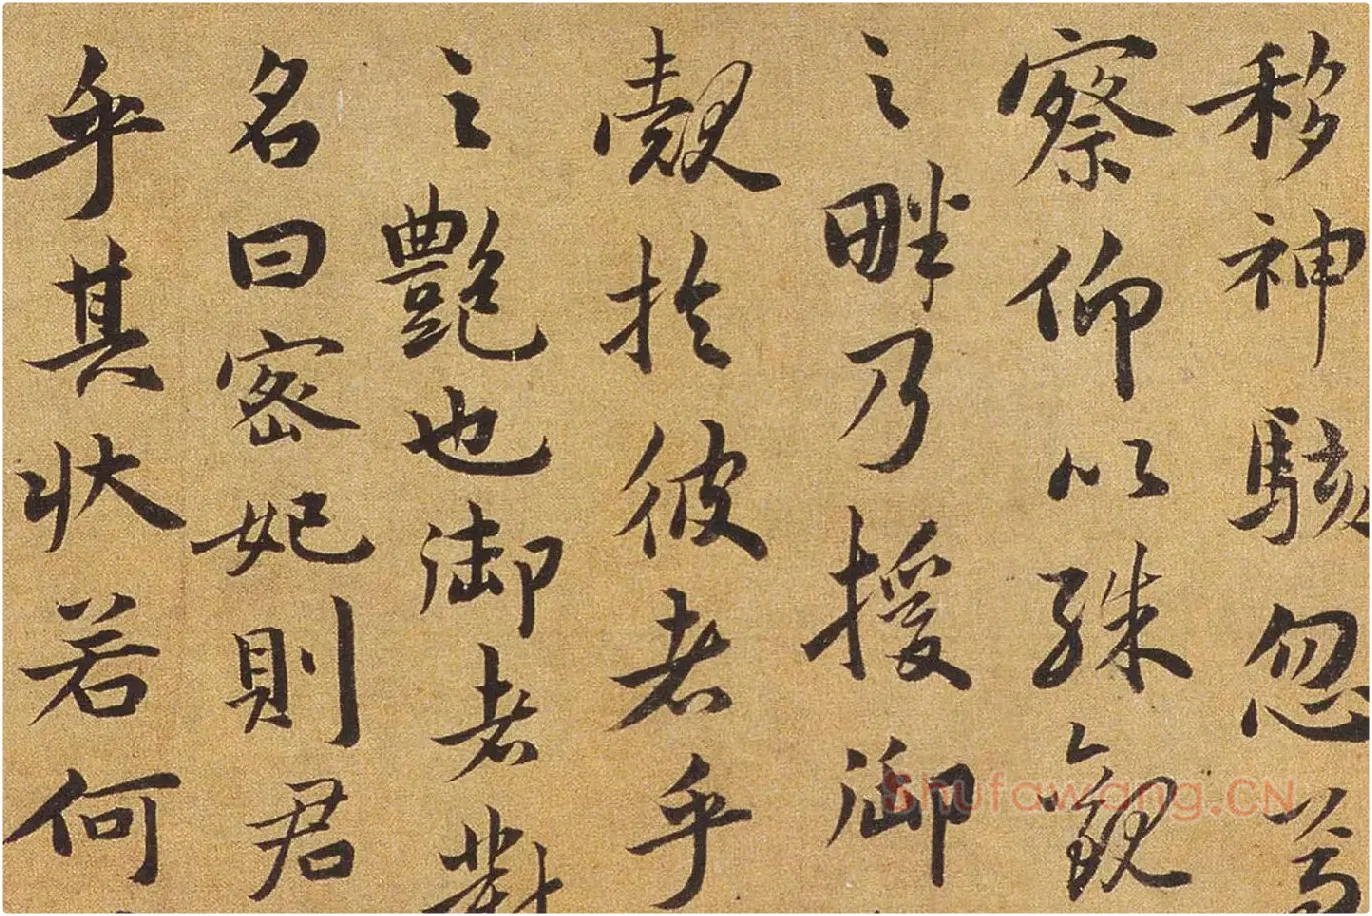 移神駭忽
察仰以殊觀
之畔乃援御
覿於彼者乎
之艷也御者對
名曰密妃則君
乎其状若何
Shufawang.CN